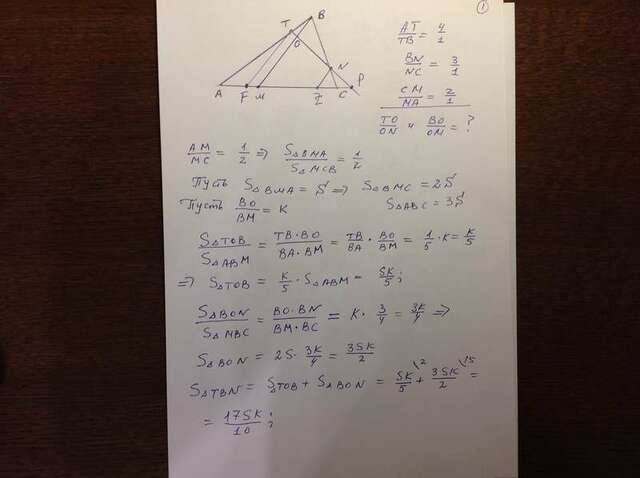 1
T B
O
N
P
A F M Z C
AT/TB = 4/1
BN/NC = 3/1
CM/MA = 2/1
TO/ON и BO/OM = ?
AM/MC = 1/2 => S△BMA/S△MCB = 1/2
Пусть S△BMA = S => S△BMC = 2S
S△ABC = 3S
Пусть BO/BM = K
S△TOB/S△ABM = TB·BO/BA·BM = TB/BA · BO/BM = 1/5 · K = K/5
=> S△TOB = K/5 · S△ABM = SK/5;
S△BON/S△MBC = BO·BN/BM·BC = K · 3/4 = 3K/4 =>
S△BON = 2S · 3K/4 = 3SK/2
S△TBN = S△TOB + S△BON = SK/5 \2 + 3SK/2 \5 =
= 17SK/10;